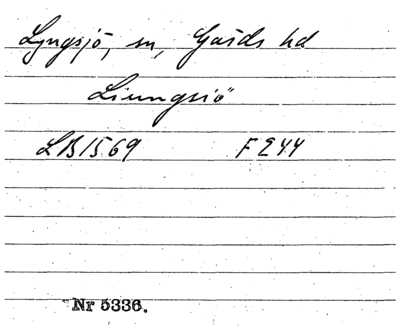 Lyngsjö, sn, Gärds hd
Liungsiö
LB1569 F244
Nr 5336.